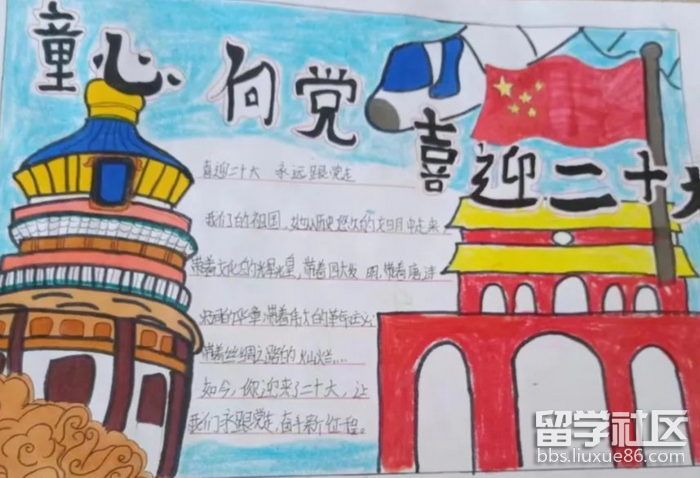 童心向党
喜迎二十大
喜迎二十大 永远跟党走
我们的祖国,她从历史悠久的岁月中走来
带着文化的辉煌,带着四大发明,带着唐诗
宋词的华章,带着伟大的革命
带着丝绸之路的灿烂....
如今,你迎来了二十大,让
我们永跟党走,奋斗新征程。
留学社区
bbs.liuxue86.com